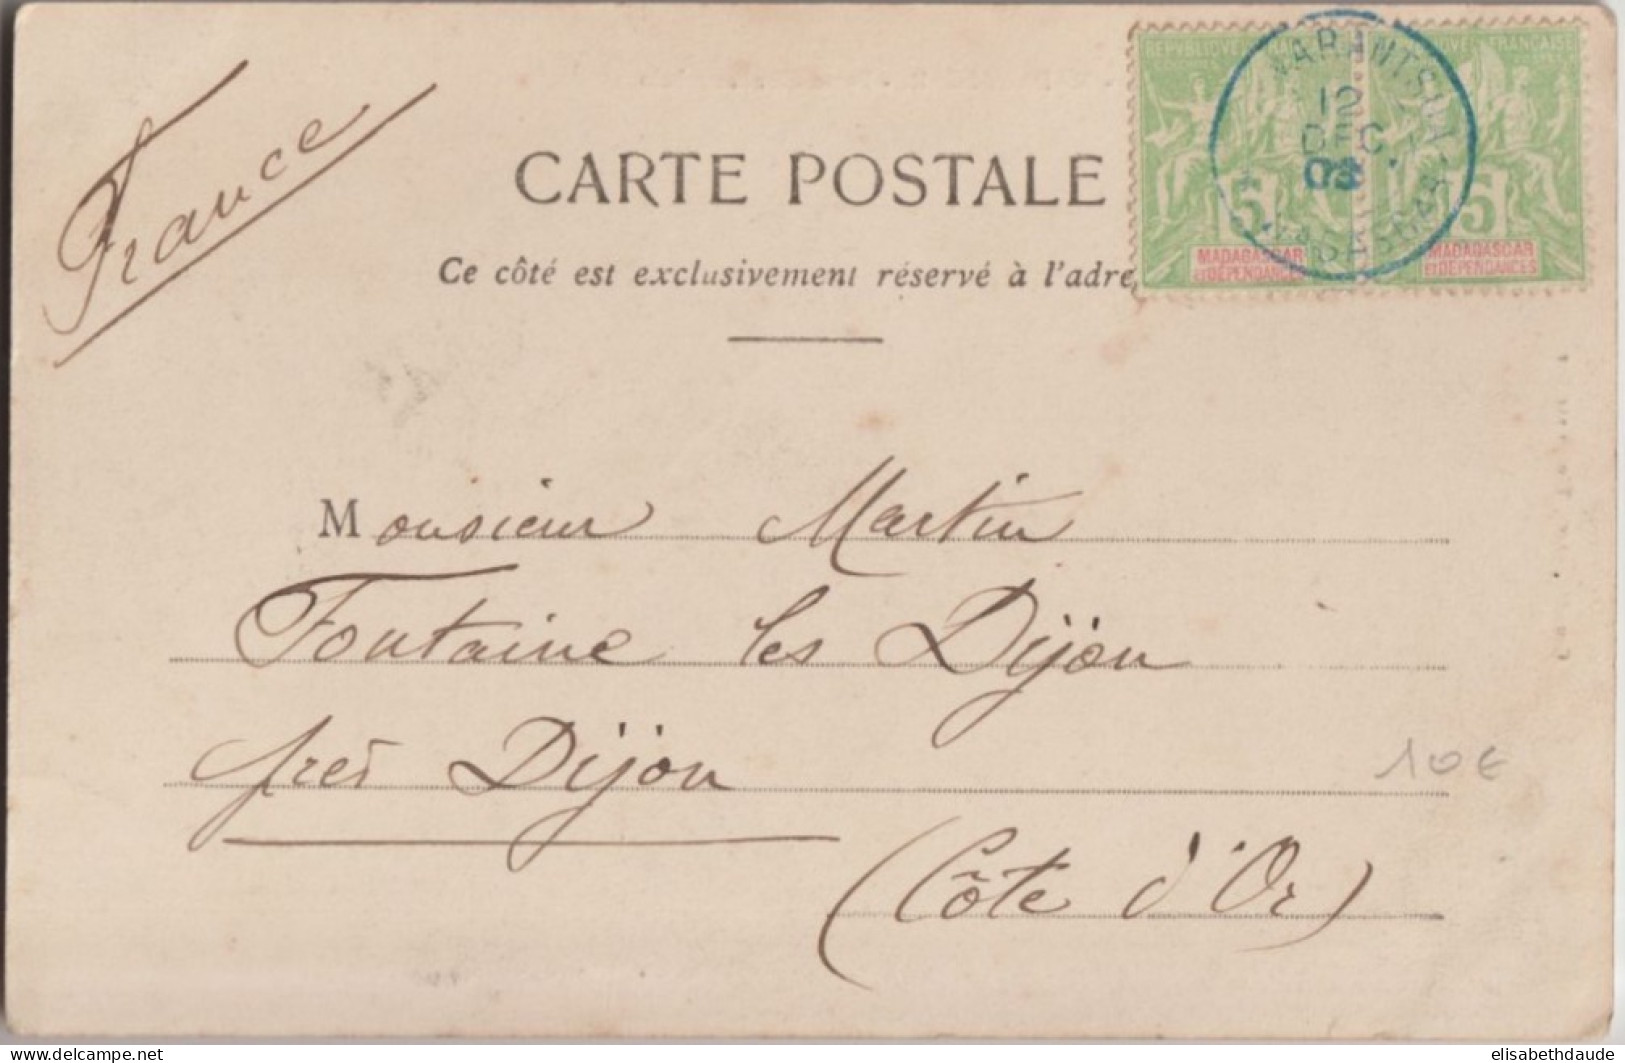 France
CARTE POSTALE
Ce côté est exclusivement réservé à l'adre
REPVBLIQVE FRANÇAISE
5 5
MADAGASCAR MADAGASCAR
ET DÉPENDANCES ET DÉPENDANCES
12
DEC.
03
Monsieur Martin
Fontaine les Dijon
près Dijon
(Côte d'Or)
10€
delcampe.net
elisabethdaude